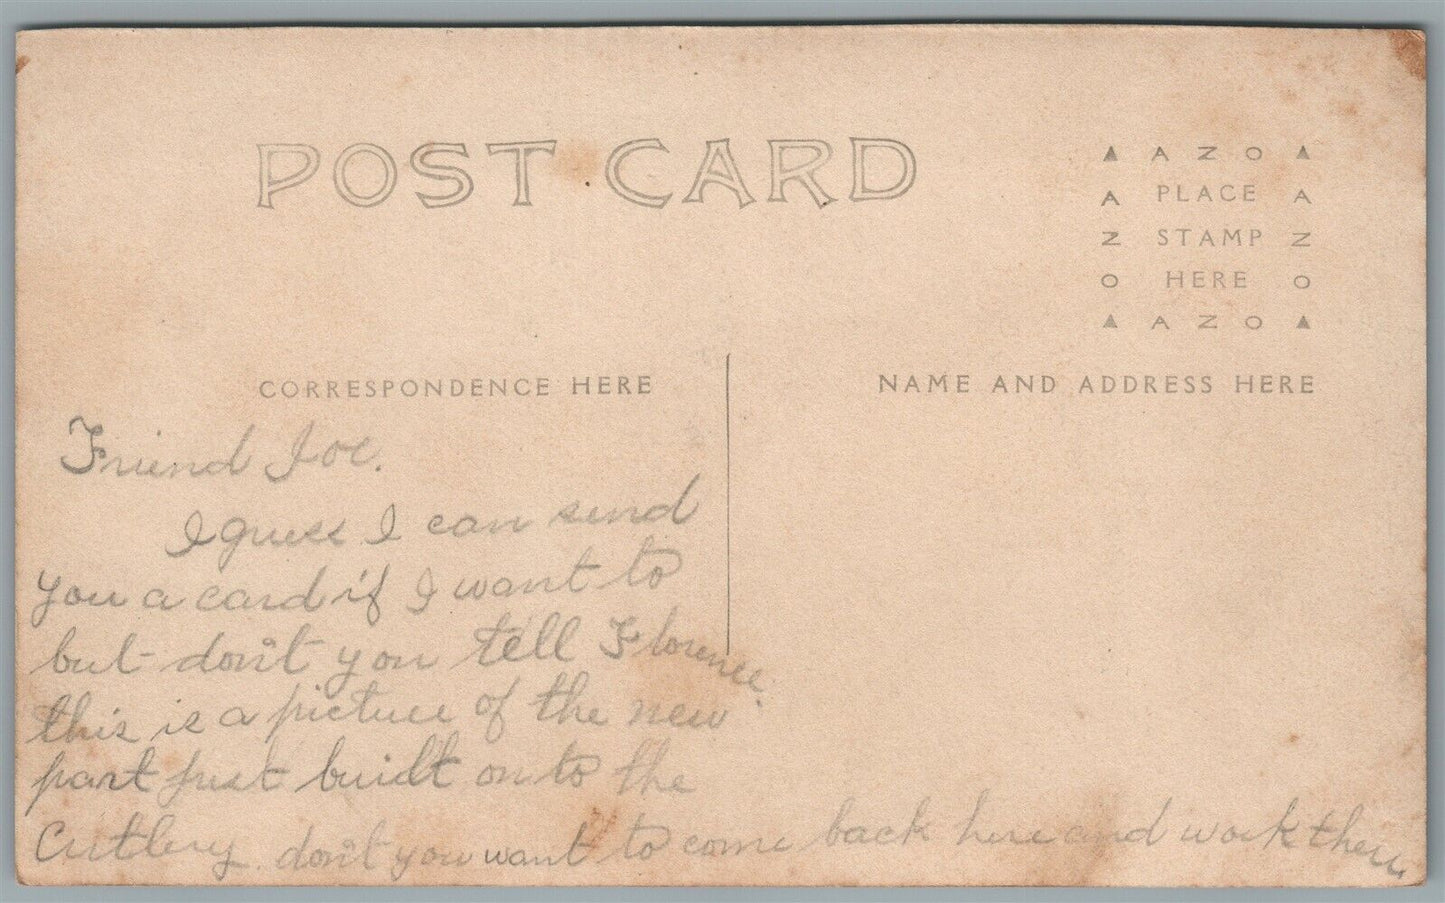 POST CARD
▲ A Z O ▲
A PLACE A
Z STAMP Z
O HERE O
▲ A Z O ▲
CORRESPONDENCE HERE
NAME AND ADDRESS HERE
Friend Joe.
I guess I can send
you a card if I want to
but don't you tell Florence.
this is a picture of the new
part just built onto the
Cutlery. don't you want to come back here and work there